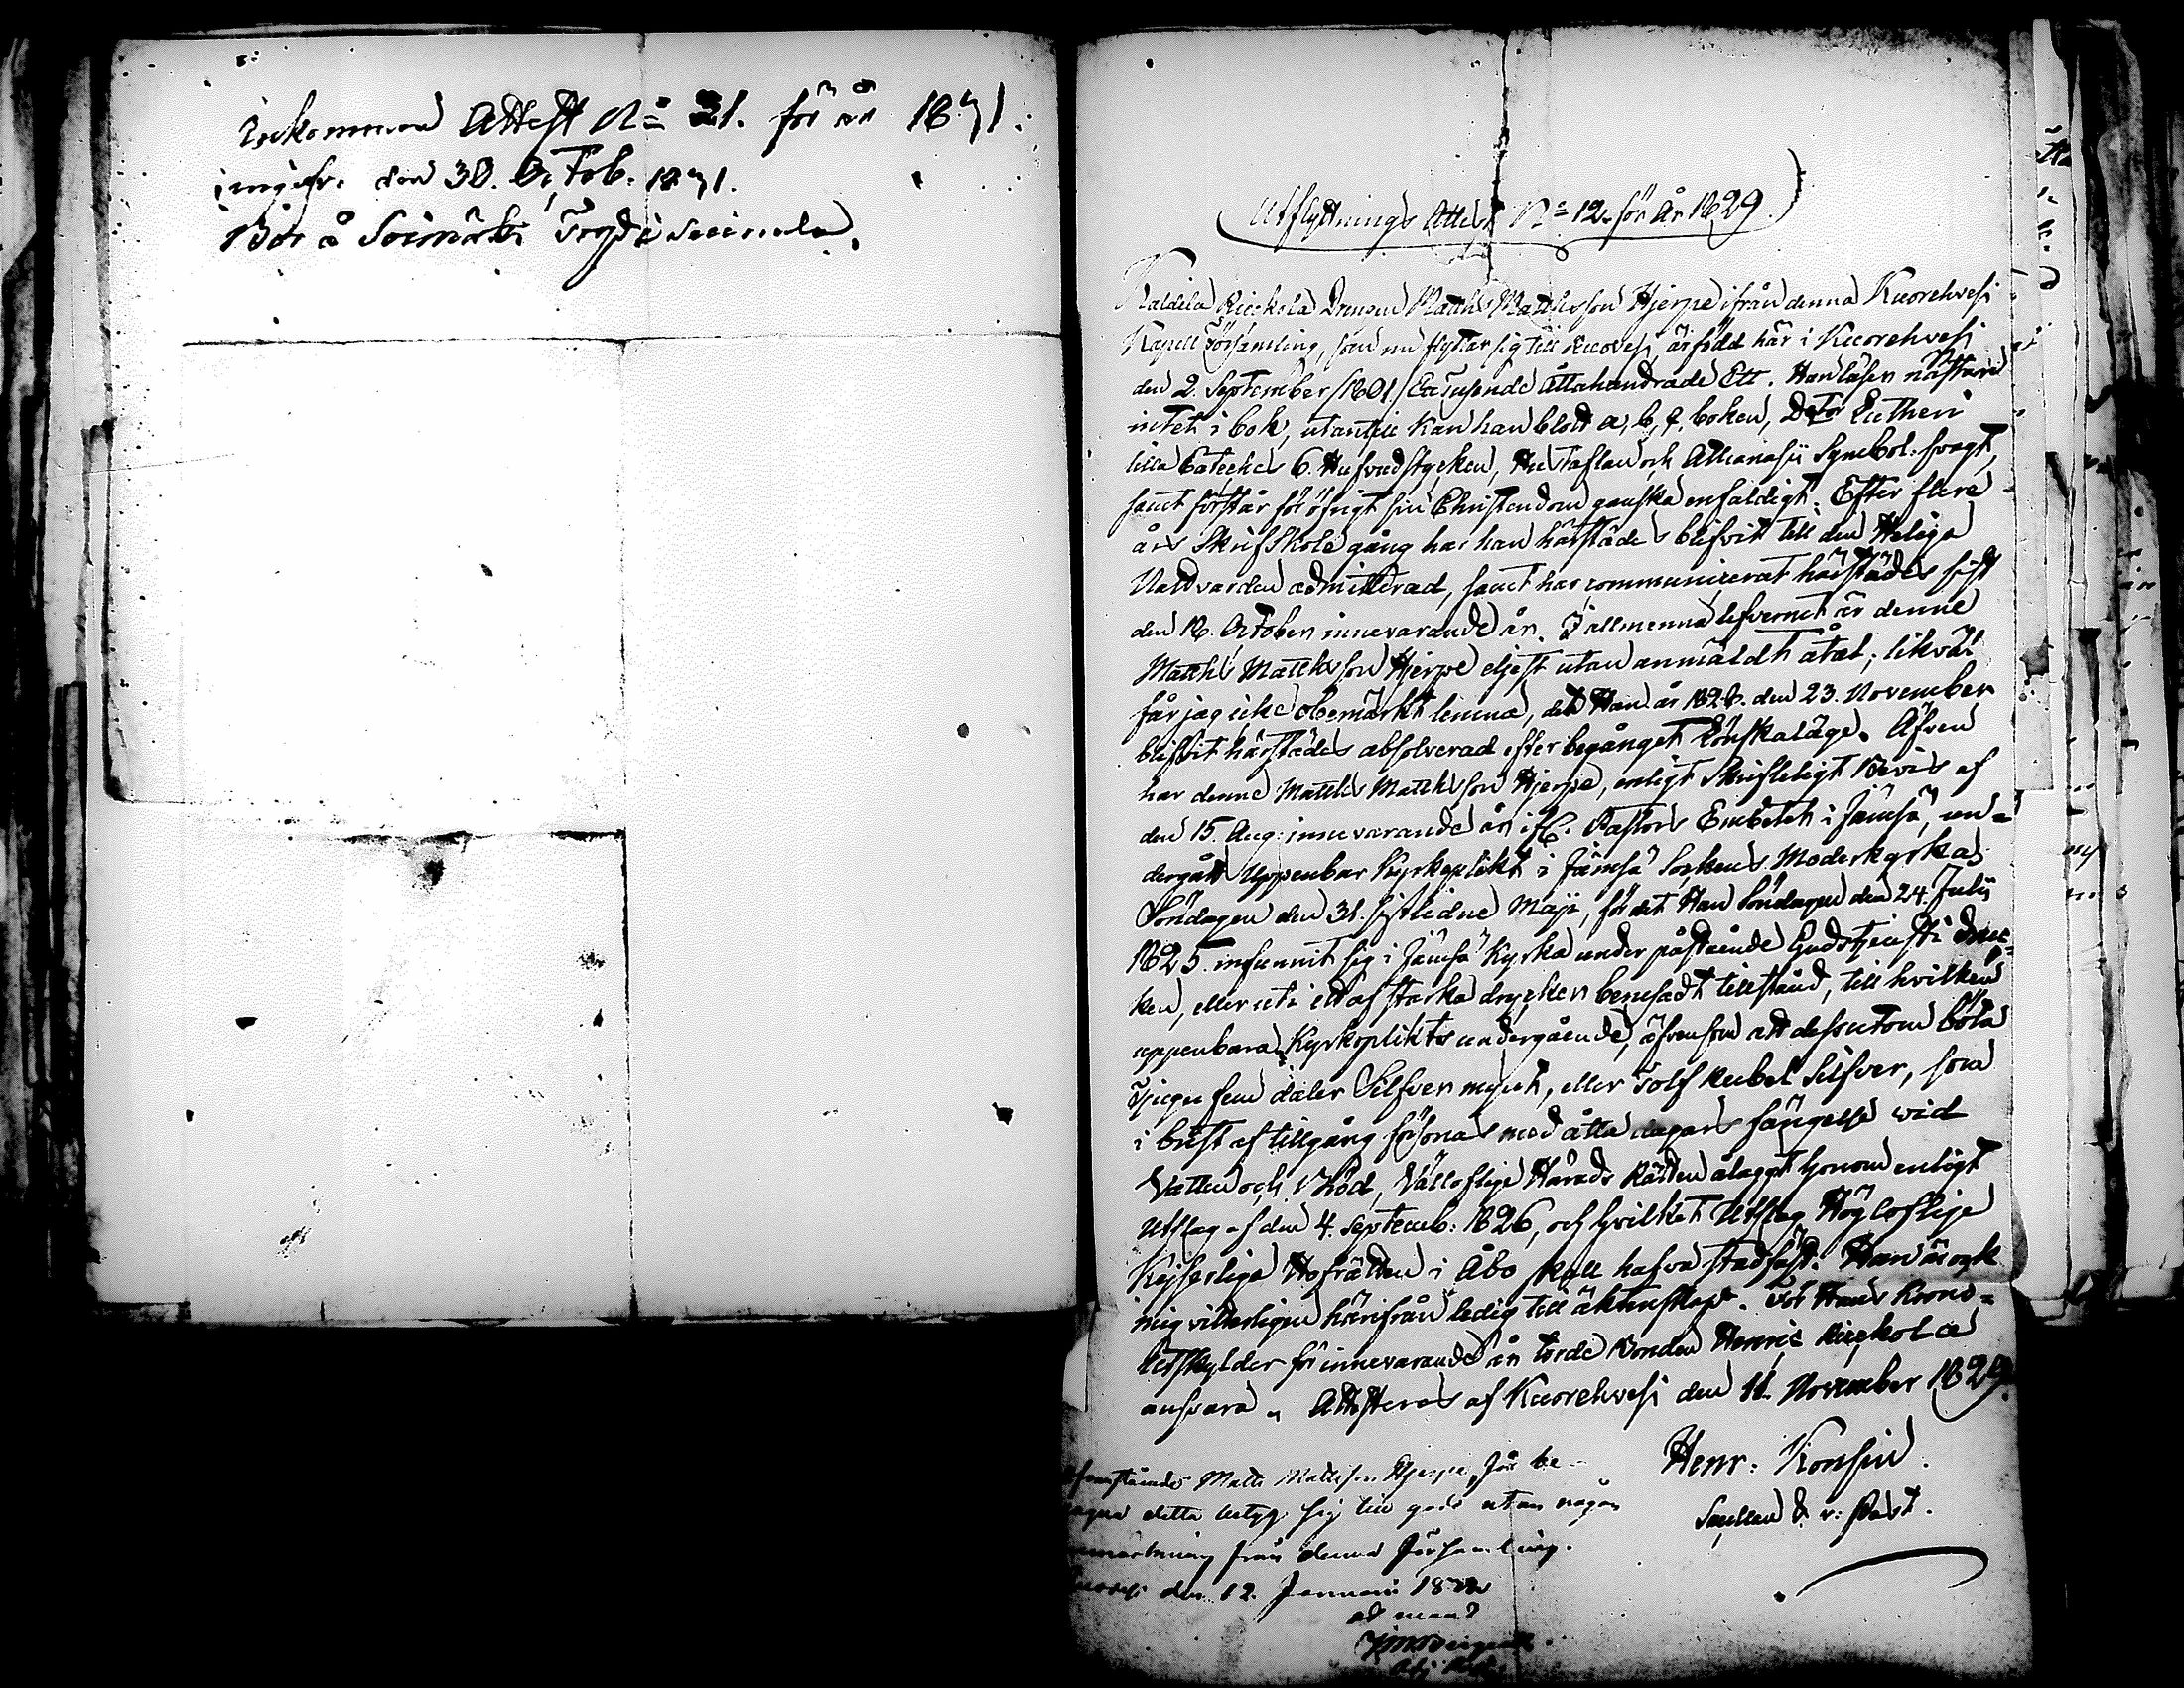 Inkommen Attest No 21. för år 1831.
ingifv. den 30. Octob. 1831.
Bor å Soimäki
Utflyttnings Attest No 12. för År 1829.
Drengen Matths Matthsson Hjerpe ifrån denna Kuorehvesi
Kapell Församling, som nu flyttar sig till Ruovesi, är född här i Kuorehvesi
den 2. September /1801/ Ettusende Åttahundrade Ett. Han läser nästan
intet i bok, utantill kan han blott a, b, c, boken, Dctor Lutheri
lilla Cateches 6. Hufvudstycken, Hustaflan och Athanasii Symbol. svagt,
samt förstår för öfrigt sin Christendom ganska enfaldigt. Efter flere
års Skrifskole gång har han härstädes blifvit till den Heliga
Nattvarden admitterad, samt har communicerat härstädes sist
den 18. October innevarande år. I allmenna lefvernet är denne
Matths Mattsson Hjerpe eljest utan anmäldt åtal; likväl
får jag icke obemärkt lemna, att Han år 1828. den 23. November
blifvit härstädes absolverad efter begånget Lönskaläge. Äfven
har denne Matths Mattsson Hjerpe, enligt Skrifteligt Bevis af
den 15. Aug: innevarande år ifr. Pastors Embetet i Jämsä, un-
dergått Uppenbar Kyrkoplikt i Jämsä Sockens Moderkyrka
Söndagen den 31. sistledne Maji, för det Han Söndagen den 24. Julii
1825. infunnit sig i Jämsä Kyrka under påstående Gudstjenst druc-
ken, eller uti ett af starka drycker berusadt tillstånd, till hvilken
uppenbara Kyrkoplikts undergående, äfvensom att dessutom böta
Tjugu fem daler Silfver mynt, eller Tolf Rubel Silfver, som
i brist af tillgång försonas med åtta dagars fängelse wid
Vatten och Bröd, Välloflige Härads Rätten ålaggt honom enligt
Utslag af den 4. Septemb: 1826, och hvilket Utslag Högloflige
Kejserliga Hofrätten i Åbo skall hafva stadfäst. Han är ock
mig vitterligen härifrån ledig till äktenskap. För Hans Krono-
Utskylder för innevarande år torde Bonden Henric Ruckola
ansvara. Attesteras af Kuorehvesi den 11. November 1829.
Henr: Konsin.
Sacellan & v: Past.
Matts Mattsson Hjerpe, får be-
detta betyg sig till godo utan någon
från denna Församling.
den 12. Januari
ad mand